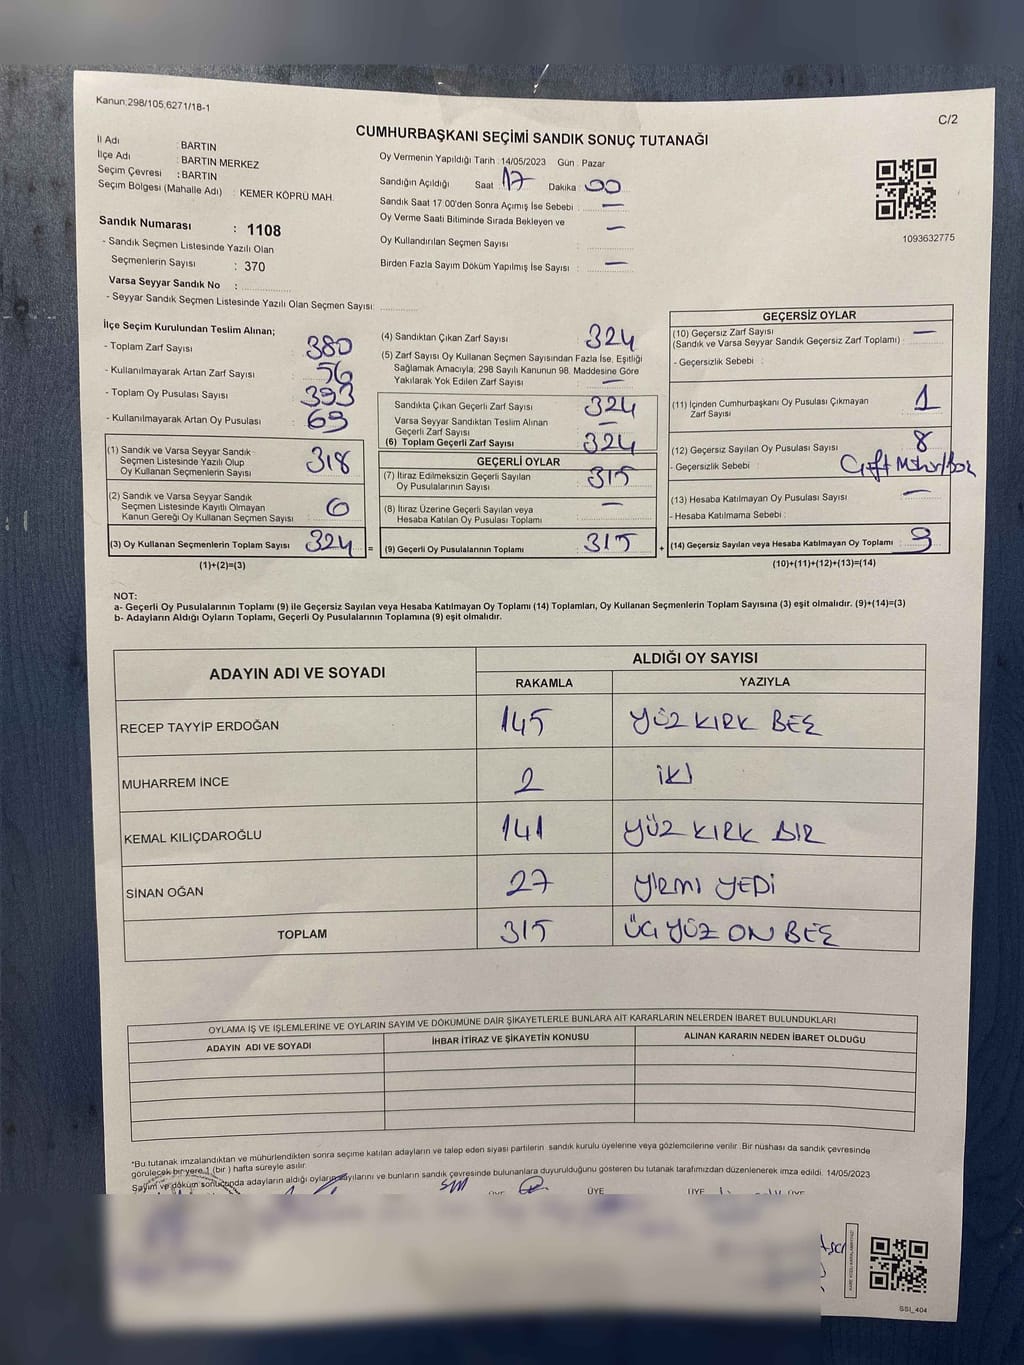 Kanun:298/105,6271/18-1
C/2
CUMHURBAŞKANI SEÇİMİ SANDIK SONUÇ TUTANAĞI
İl Adı : BARTIN
İlçe Adı : BARTIN MERKEZ
Seçim Çevresi : BARTIN
Seçim Bölgesi (Mahalle Adı) : KEMER KÖPRÜ MAH.
Sandık Numarası : 1108
- Sandık Seçmen Listesinde Yazılı Olan
Seçmenlerin Sayısı : 370
Varsa Seyyar Sandık No :
- Seyyar Sandık Seçmen Listesinde Yazılı Olan Seçmen Sayısı:
Oy Vermenin Yapıldığı Tarih : 14/05/2023 Gün : Pazar
Sandığın Açıldığı Saat 17 Dakika : 00
Sandık Saat 17 00'den Sonra Açımış İse Sebebi : —
Oy Verme Saati Bitiminde Sırada Bekleyen ve —
Oy Kullandırılan Seçmen Sayısı :
Birden Fazla Sayım Döküm Yapılmış İse Sayısı : —
1093632775
İlçe Seçim Kurulundan Teslim Alınan;
- Toplam Zarf Sayısı : 380
- Kullanılmayarak Artan Zarf Sayısı : 56
- Toplam Oy Pusulası Sayısı : 393
- Kullanılmayarak Artan Oy Pusulası : 69
(1) Sandık ve Varsa Seyyar Sandık
Seçmen Listesinde Yazılı Olup
Oy Kullanan Seçmenlerin Sayısı : 318
(2) Sandık ve Varsa Seyyar Sandık
Seçmen Listesinde Kayıtlı Olmayan
Kanun Gereği Oy Kullanan Seçmen Sayısı : 6
(3) Oy Kullanan Seçmenlerin Toplam Sayısı : 324 =
(1)+(2)=(3)
(4) Sandıktan Çıkan Zarf Sayısı : 324
(5) Zarf Sayısı Oy Kullanan Seçmen Sayısından Fazla İse, Eşitliği
Sağlamak Amacıyla, 298 Sayılı Kanunun 98. Maddesine Göre
Yakılarak Yok Edilen Zarf Sayısı : —
Sandıkta Çıkan Geçerli Zarf Sayısı : 324
Varsa Seyyar Sandıktan Teslim Alınan
Geçerli Zarf Sayısı : —
(6) Toplam Geçerli Zarf Sayısı : 324
GEÇERLİ OYLAR
(7) İtiraz Edilmeksizin Geçerli Sayılan
Oy Pusulalarının Sayısı : 315
(8) İtiraz Üzerine Geçerli Sayılan veya
Hesaba Katılan Oy Pusulası Toplamı : —
(9) Geçerli Oy Pusulalarının Toplamı : 315 +
GEÇERSİZ OYLAR
(10) Geçersiz Zarf Sayısı
(Sandık ve Varsa Seyyar Sandık Geçersiz Zarf Toplamı) : —
- Geçersizlik Sebebi :
(11) İçinden Cumhurbaşkanı Oy Pusulası Çıkmayan
Zarf Sayısı : 1
(12) Geçersiz Sayılan Oy Pusulası Sayısı : 8
- Geçersizlik Sebebi :
(13) Hesaba Katılmayan Oy Pusulası Sayısı : —
- Hesaba Katılmama Sebebi :
(14) Geçersiz Sayılan veya Hesaba Katılmayan Oy Toplamı : 9
(10)+(11)+(12)+(13)=(14)
NOT:
a- Geçerli Oy Pusulalarının Toplamı (9) ile Geçersiz Sayılan veya Hesaba Katılmayan Oy Toplamı (14) Toplamları, Oy Kullanan Seçmenlerin Toplam Sayısına (3) eşit olmalıdır. (9)+(14)=(3)
b- Adayların Aldığı Oyların Toplamı, Geçerli Oy Pusulalarının Toplamına (9) eşit olmalıdır.
ADAYIN ADI VE SOYADI
ALDIĞI OY SAYISI
RAKAMLA YAZIYLA
RECEP TAYYİP ERDOĞAN 145 YÜZ KIRK BEŞ
MUHARREM İNCE 2 İKİ
KEMAL KILIÇDAROĞLU 141 YÜZ KIRK BİR
SİNAN OĞAN 27 YİRMİ YEDİ
TOPLAM 315 ÜÇ YÜZ ON BEŞ
OYLAMA İŞ VE İŞLEMLERİNE VE OYLARIN SAYIM VE DÖKÜMÜNE DAİR ŞİKAYETLERLE BUNLARA AİT KARARLARIN NELERDEN İBARET BULUNDUKLARI
ADAYIN ADI VE SOYADI
İHBAR İTİRAZ VE ŞİKAYETİN KONUSU
ALINAN KARARIN NEDEN İBARET OLDUĞU
*Bu tutanak imzalandıktan ve mühürlendikten sonra seçime katılan adayların ve talep eden siyasi partilerin sandık kurulu üyelerine veya gözlemcilerine verilir. Bir nüshası da sandık çevresinde
görülecek bir yere 1 (bir ) hafta süreyle asılır.
Sayım ve döküm sonucunda adayların aldığı oyların sayılarını ve bunların sandık çevresinde bulunanlara duyurulduğunu gösteren bu tutanak tarafımızdan düzenlenerek imza edildi. 14/05/2023
ÜYE ÜYE ÜYE ÜYE
SSI_404